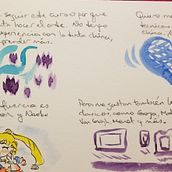 seguir este curso porque
hacer el arte. No tengo
experiencia con la tinta china,
prender más.
Quiero
técnicas
china,
fluencia es
y Naoko
Pero me gustan también
clásicos, como Goya, Mo
Van Gogh, Manet y más.